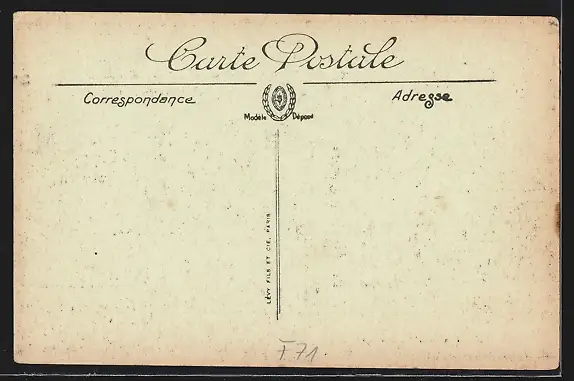 Carte Postale
Correspondance
Adresse
Modèle Déposé
LÉVY FILS ET CIE, PARIS
F71